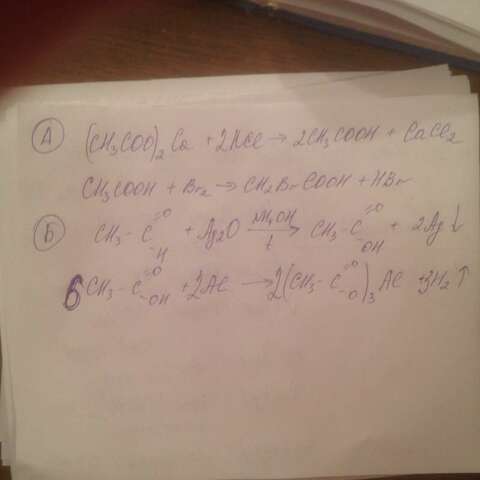 А (CH₃COO)₂Ca + 2HCl → 2CH₃COOH + CaCl₂
CH₃COOH + Br₂ → CH₂BrCOOH + HBr
Б CH₃ - C =O -H + Ag₂O NH₄OH → t CH₃ - C =O OH + 2Ag↓
6CH₃ - C =O -OH + 2Al → 2(CH₃ - C =O -O)₃Al + 3H₂↑